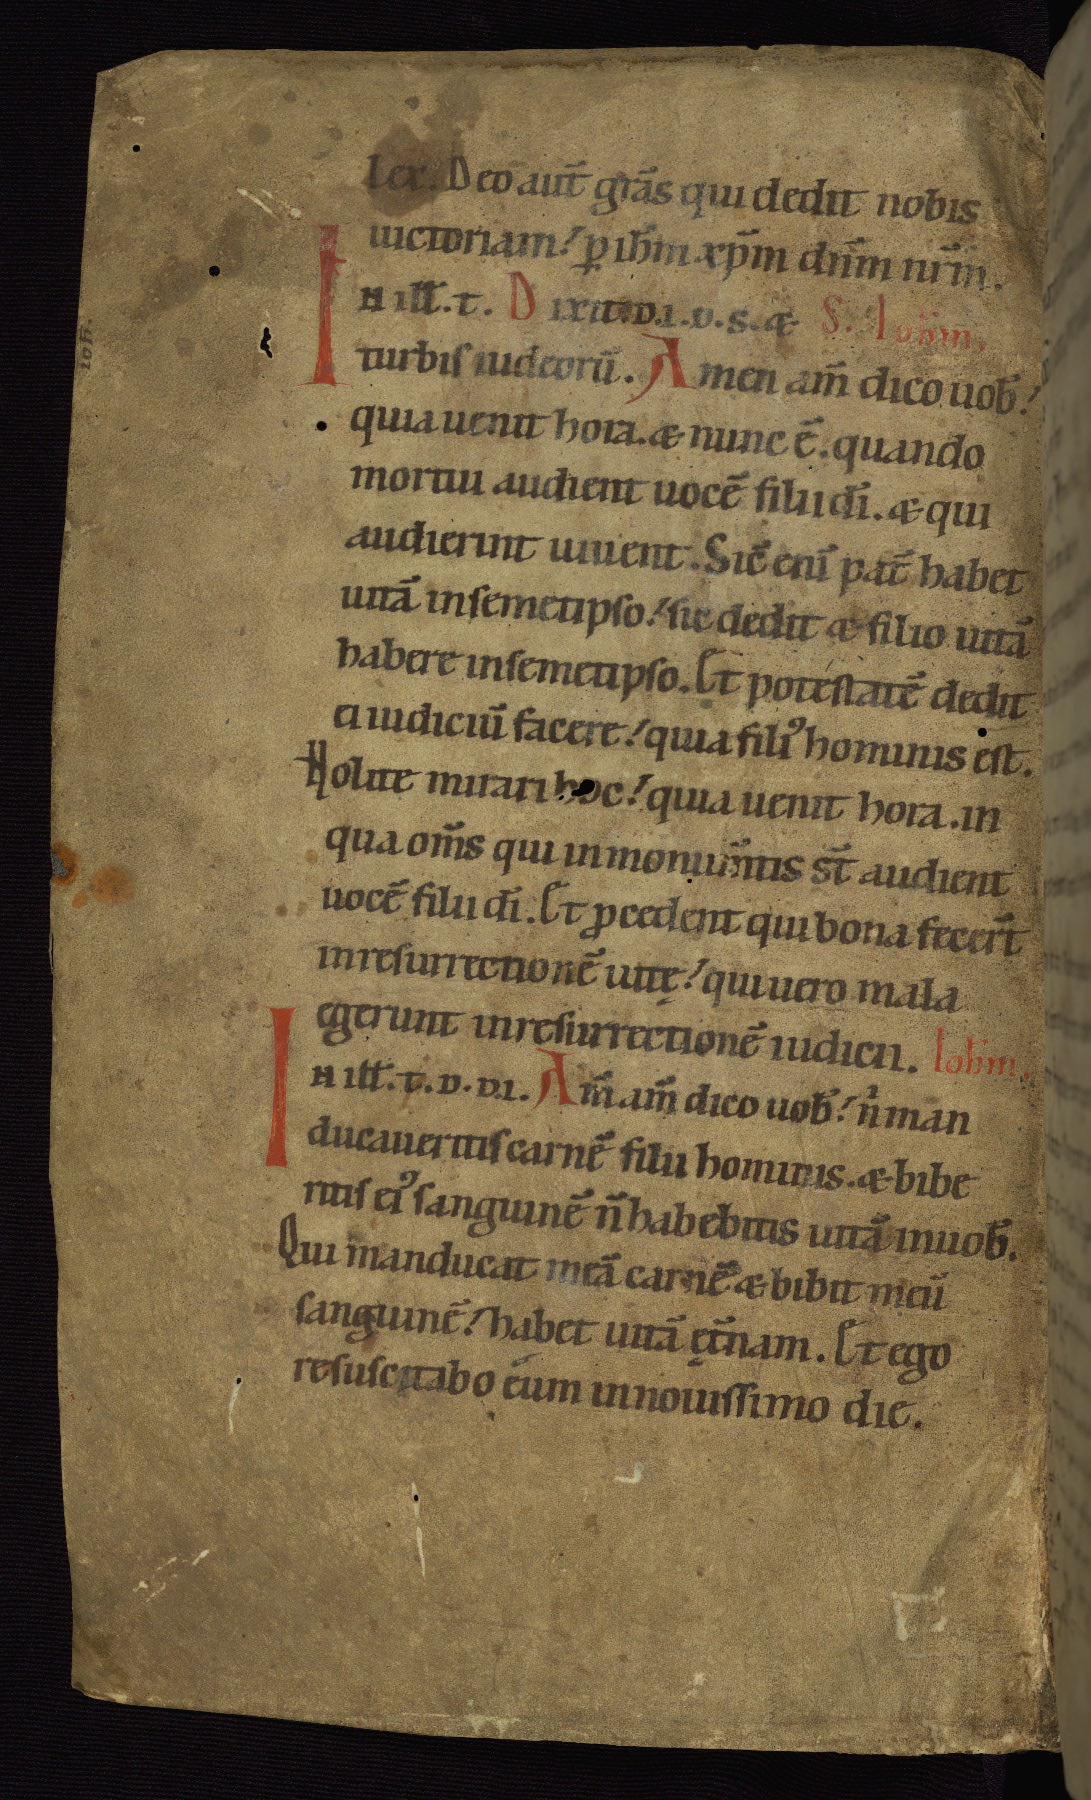 lex. Deo aut̄ gr̄as qui dedit nobis
uictoriam! ꝑ ih̄m xp̄m dn̄m nr̄m.
IN ill̄. t. Dixit. d. i. d. s. & S. Ioh̄m.
turbis iudeorū. Amen am̄ dico uob̄!
quia uenit hora. & nunc ē. quando
mortui audient uocē filii dī. & qui
audierint uiuent. Sic̄ enī pat̄ habet
uitā in semetipso! sic dedit & filio uitā
habere in semetipso. Et potestatē dedit
ei iudiciū facere! quia filiꝰ hominis est.
Nolite mirari hoc! quia uenit hora. in
qua om̄s qui in monum̄tis st̄ audient
uocē filii dī. Et ꝓcedent qui bona fecer̄t
in resurrectionē uitę! qui uero mala
egerunt in resurrectionē iudicii. Ioh̄m.
IN ill̄. t. d. d. i. Am̄ am̄ dico uob̄! nͥ man
ducaueritis carnē filii hominis. & bibe
ritis eiꝰ sanguinē n̄ habebitis uitā in uob̄.
Qui manducat meā carnē & bibit meū
sanguinē! habet uitā ęt̄nam. Et ego
resuscitabo eum in nouissimo die.